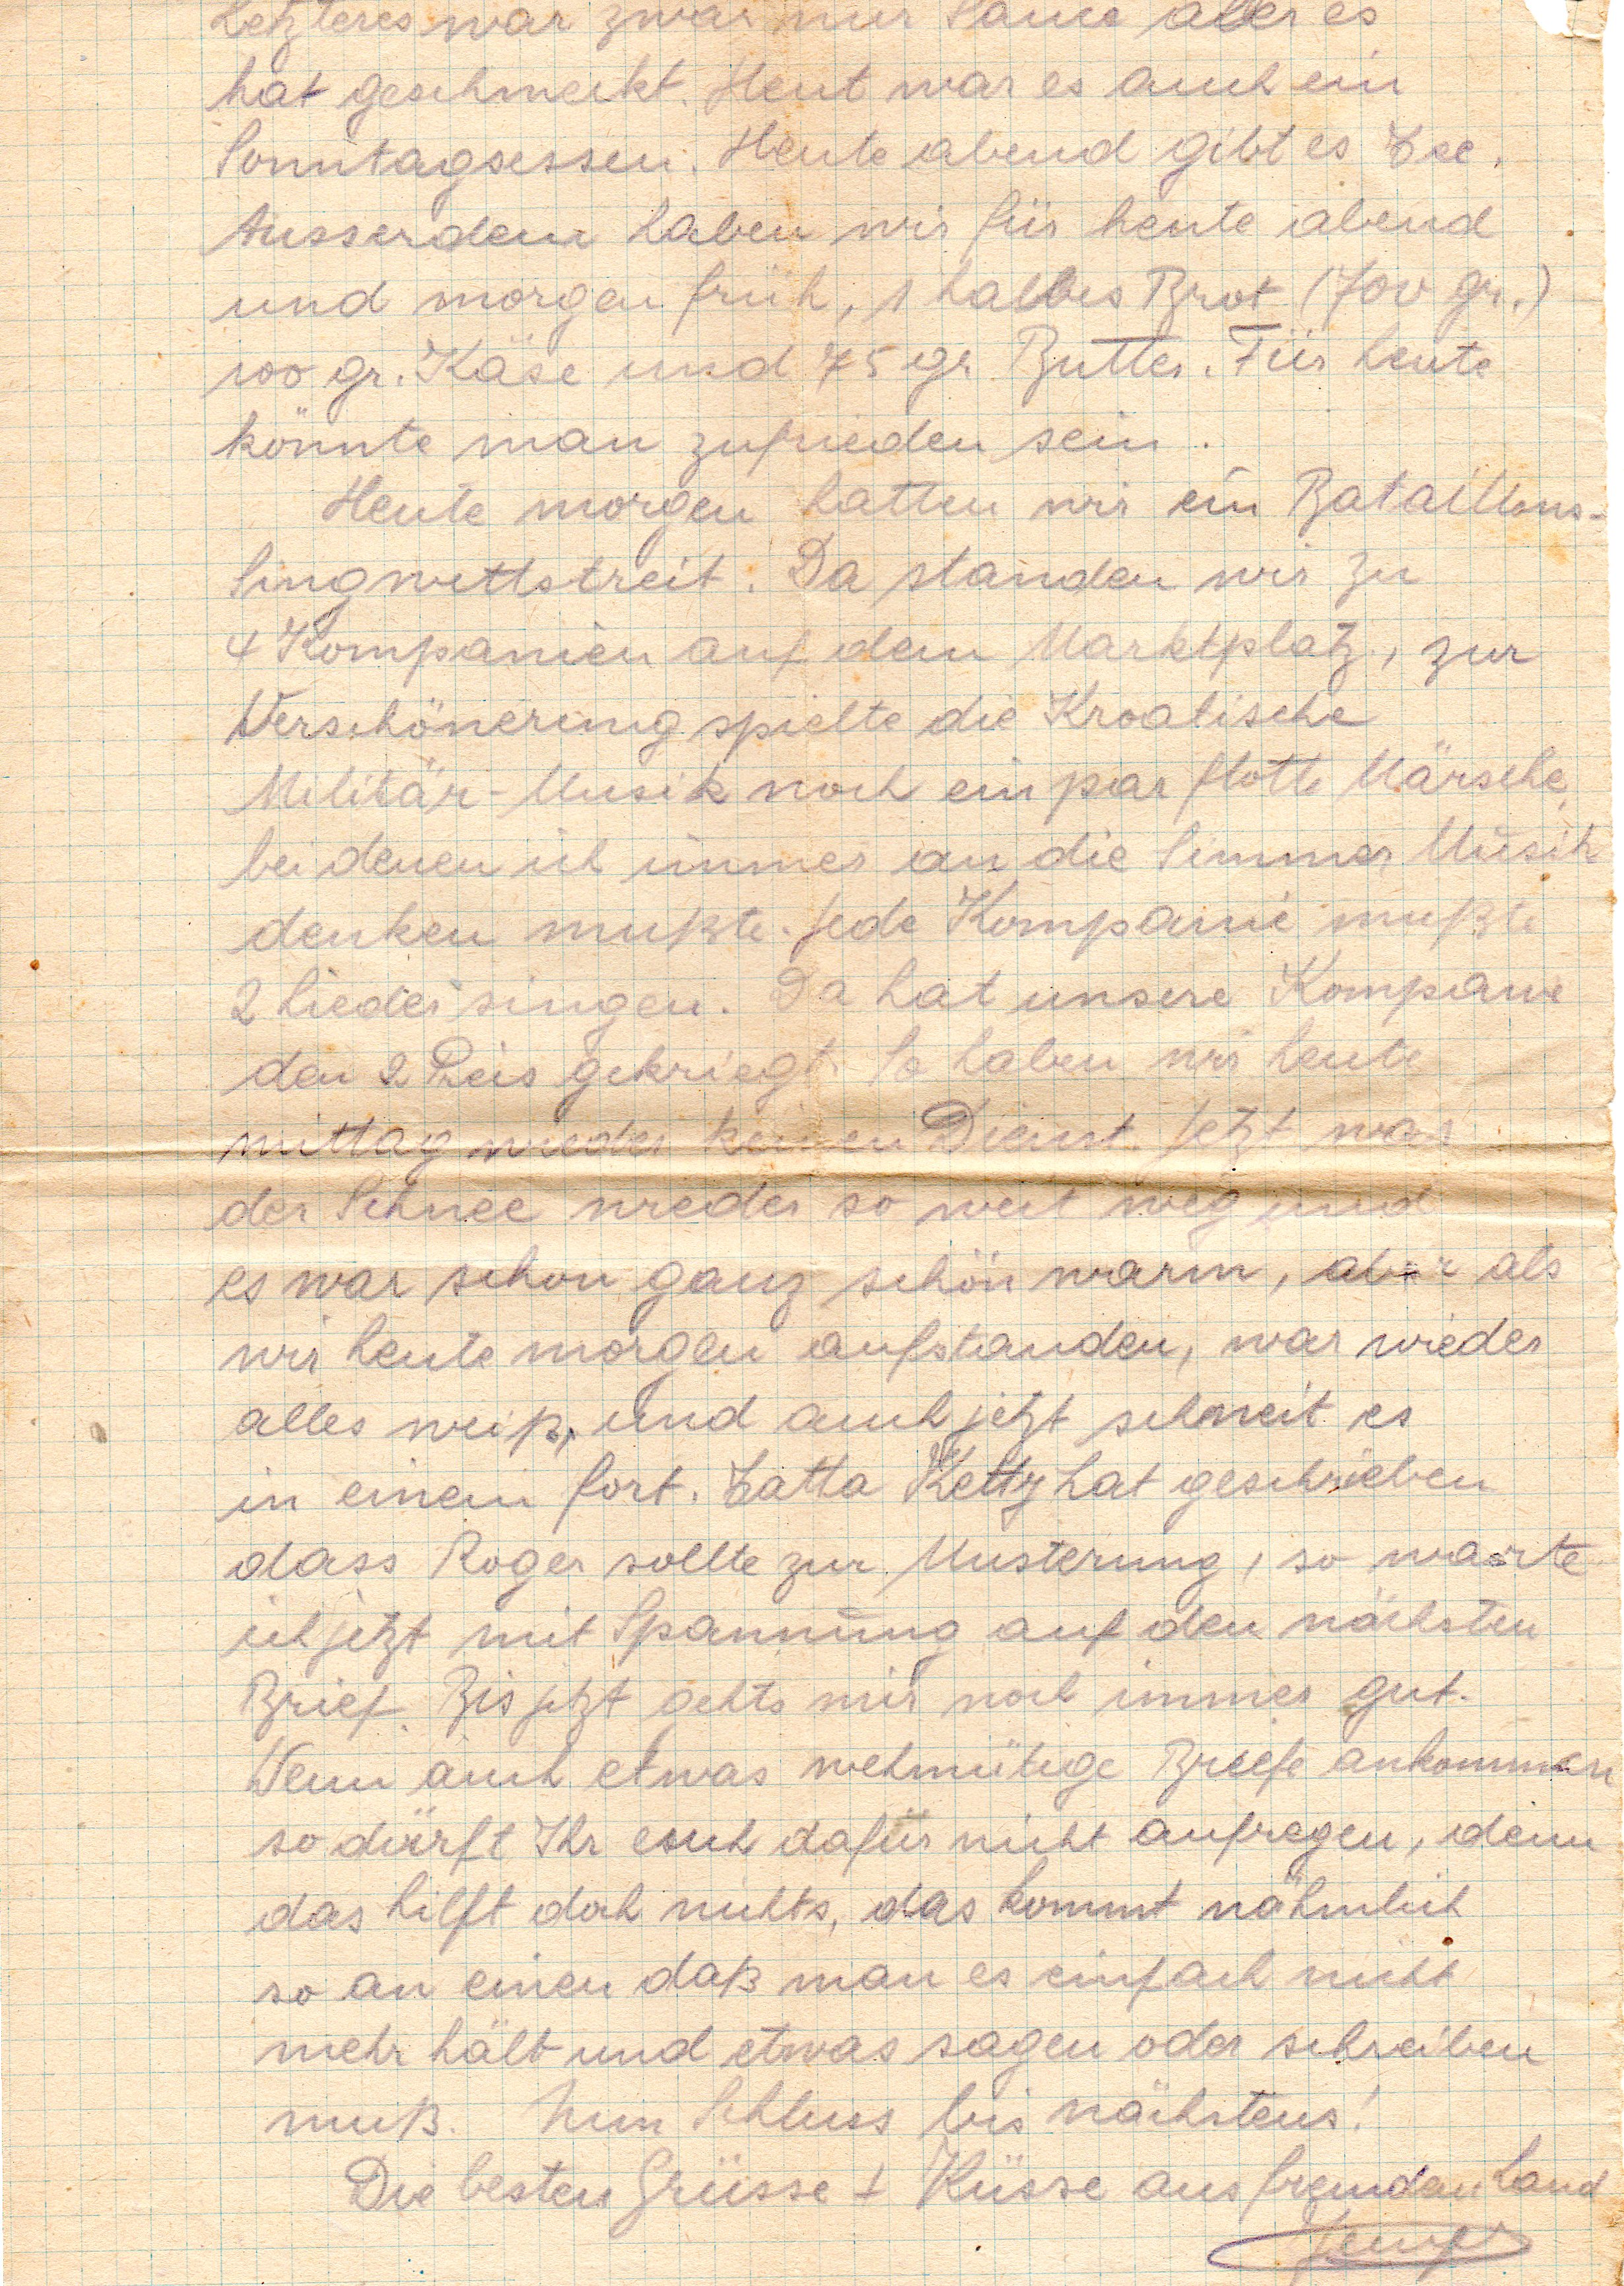 Letzteres war zwar nur Sauce aber es
hat geschmeckt. Heut war es auch ein
Sonntagsessen. Heute abend gibt es Tee.
Ausserdem haben wir für heute abend
und morgen früh, 1 halbes Brot (700 gr.)
100 gr. Käse und 75 gr. Butter. Für heute
könnte man zufrieden sein.
Heute morgen hatten wir ein Bataillons-
Singwettstreit. Da standen wir zu
4 Kompanien auf dem Marktplatz, zur
Verschönerung spielte die Kroatische
Militär-Musik noch ein par flotte Märsche,
bei denen ich immer an die Simmer Musik
denken mußte. Jede Kompanie mußte
2 Lieder singen. Da hat unsere Kompanie
den 2 Preis gekriegt. So haben wir heute
mittag wieder keinen Dienst. Jetzt war
der Schnee wieder so weit weg und
es war schon ganz schön warm, aber als
wir heute morgen aufstanden, war wieder
alles weiß, und auch jetzt schneit es
in einem fort. Tatta Ketty hat geschrieben
dass Roger sollte zur Musterung, so warte
ich jetzt mit Spannung auf den nächsten
Brief. Bis jetzt gehts mir noch immer gut.
Wenn auch etwas wehmütige Briefe ankommen
so dürft Ihr euch dafür nicht aufregen, denn
das hilft doch nichts, das kommt nähmlich
so an einen daß man es einfach nicht
mehr hält und etwas sagen oder schreiben
muß. Nun Schluss bis nächstens!
Die besten Grüsse + Küsse aus fremden Land